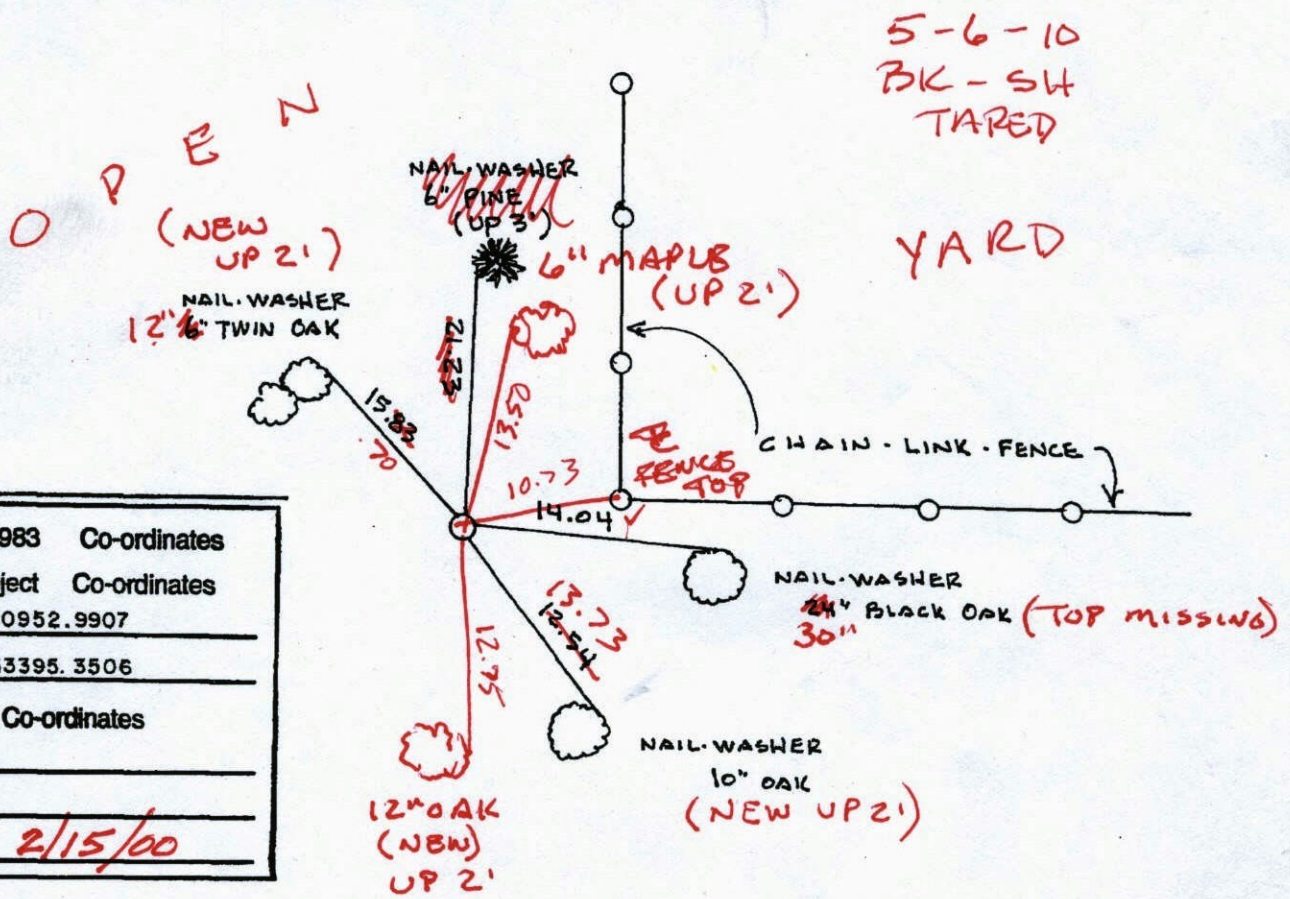 5-6-10
BK - SH
TAPED
O P E N
YARD
NAIL·WASHER
6" PINE
(UP 3')
(NEW
UP 2')
6" MAPLE
(UP 2')
NAIL·WASHER
12" 6" TWIN OAK
22.23
13.50
15.83
.70
10.73
14.04
FENCE
TOP
CHAIN·LINK·FENCE
NAIL·WASHER
24" BLACK OAK (TOP MISSING)
30"
13.73
12.54
12.75
NAIL·WASHER
10" OAK
(NEW UP 2')
12" OAK
(NEW)
UP 2'
983 Co-ordinates
ject Co-ordinates
0952.9907
3395.3506
Co-ordinates
2/15/00